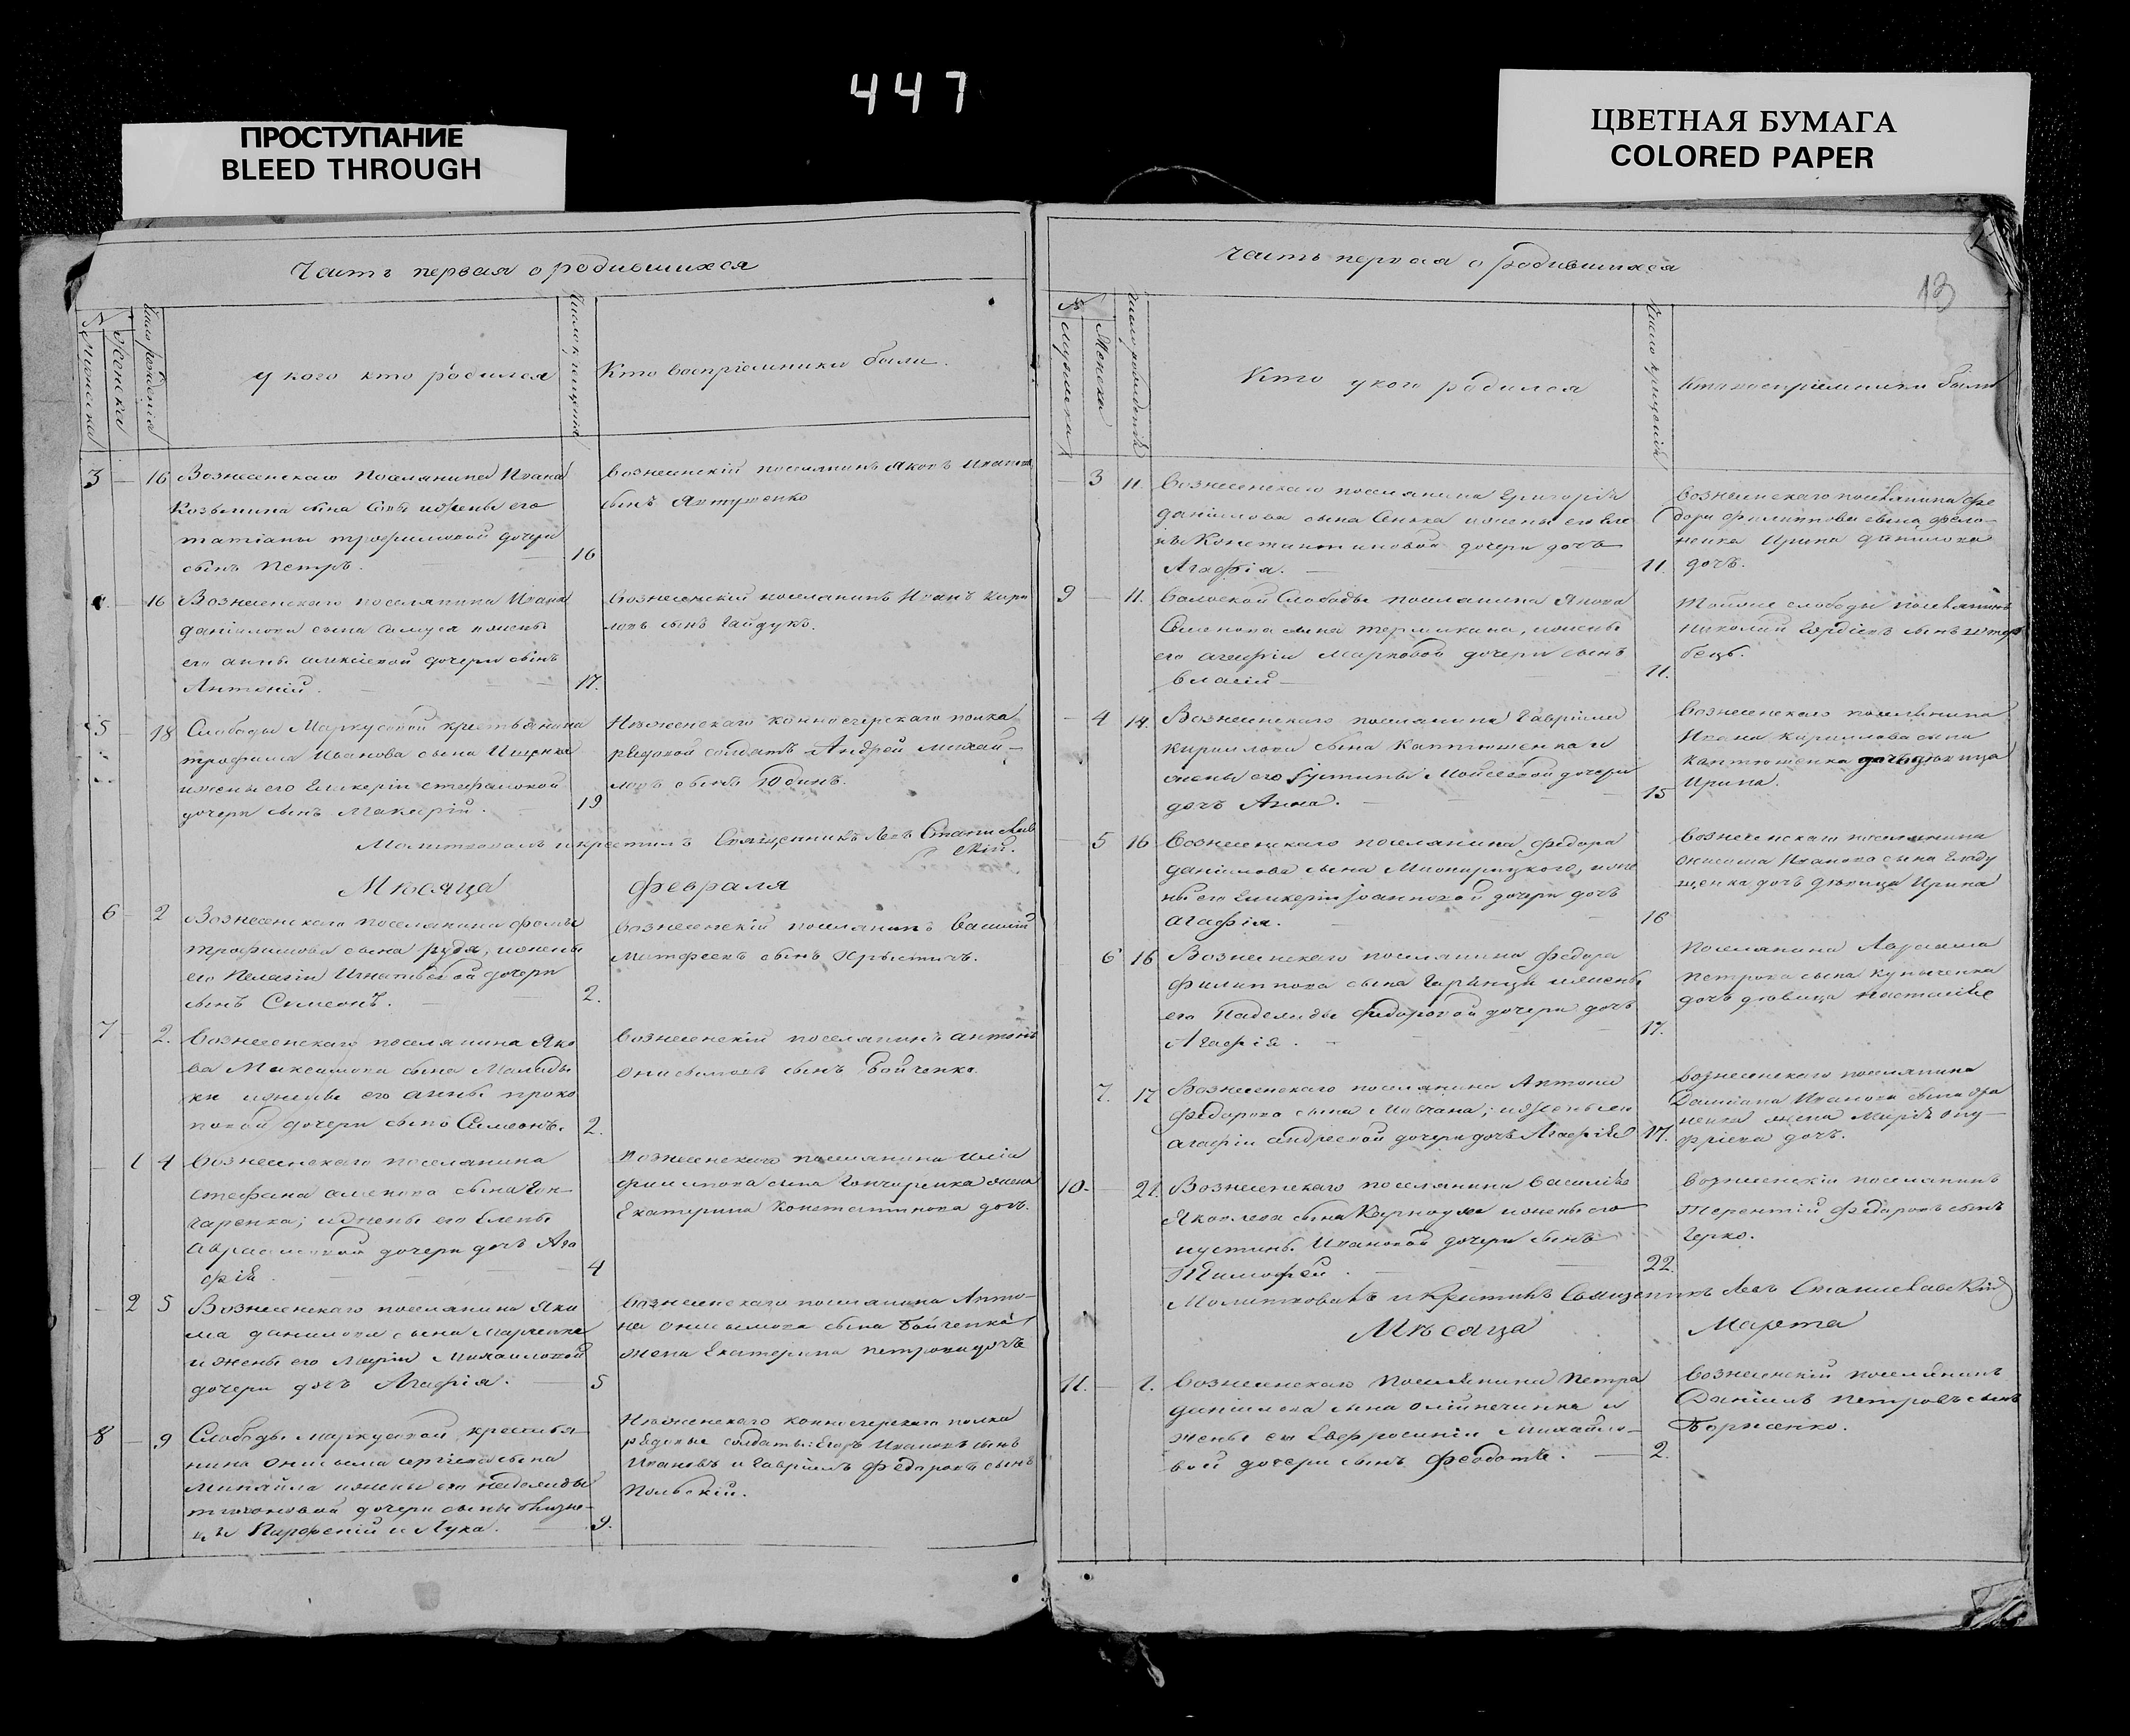 447
ПРОСТУПАНИЕ
BLEED THROUGH
ЦВЕТНАЯ БУМАГА
COLORED PAPER
Часть первая о родившихся
№
Мужеска
Женска
Число рождения
У кого кто родился
Число крещения
Кто восприемники были.
3 — 16 Вознесенскаго поселянина Ивана
Козьмина сына и жены его
татіаны трофимовой дочери
сынъ Петръ. 16
Вознесенскій поселянинъ Яковъ Ивановъ
сынъ Явтушенко
16 Вознесенскаго поселянина Ивана
даніилова сына и жены
его анны алексіевой дочери сынъ
Антоній. 17.
Вознесенскій поселянинъ Иванъ
сынъ Гайдукъ.
5 — 18 Слободы Маркусовой крестьянина
трофима Иванова сына Ищенка
и жены его Гликеріи стефановой
дочери сынъ Макарій. 19
Нѣженскаго конноегерскаго полка
рядовой солдатъ Андрей михай-
ловъ сынъ Юдинъ.
Молитвовалъ и крестилъ Священникъ Левъ Станиславскій.
Мѣсяца Февраля
6 — 2 Вознесенскаго поселянина фомы
трофимова сына руда, и жены
его Пелагіи Игнатьевой дочери
сынъ Симеонъ. 2.
Вознесенскій поселянинъ Василій
Матфеевъ сынъ
7 — 2. Вознесенскаго поселянина Яко
ва Максимова сына
ки и жены его анны проко
повой дочери сынъ Симеонъ. 2.
Вознесенскій поселянинъ антонъ
Онисимовъ сынъ Бойченко.
— 1 4 Вознесенскаго поселянина
стефана сына Гон-
чаренка; и жены его Елены
Авраамовой дочери дочь Ага
фія. 4
Вознесенскаго поселянина
сына Гончаренка жена
Екатерина Константинова дочь.
— 2 5 Вознесенскаго поселянина Яки
ма данилова сына Марченка
и жены его Маріи Михаиловой
дочери дочь Агафія. 5
Вознесенскаго поселянина Анто-
на Онисимова сына Бойченка
жена Екатерина петрова дочь
8 — 9 Слободы маркусовой крестья-
нина Онисима сергіева сына
Михайла и жены его надежды
тихоновой дочери сыны близне-
цы Парфеній и Лука. 9.
Нѣженскаго конноегерскаго полка
рядовые солдаты: Егоръ Ивановъ сынъ
Ивановъ и Гавріилъ Федоровъ сынъ
Польскій.
Часть первая о родившихся
13
№
Мужеска
Женска
Число рожденія
Кто у кого родился
Число крещенія
Кто восприемники были
— 3 11. Вознесенскаго поселянина Григорія
даніилова сына Сенька и жены его Еле
ны Константиновой дочери дочь
Агафія. 11.
Вознесенскаго поселянина Фе
дора филиппова сына фило-
ненка Ирина данилова
дочь.
9 — 11. Слободы поселянина Якова
Семенова сына термикина, и жены
его агафіи Марковой дочери сынъ
Власій — 11.
Тойже слободы поселянинъ
Николай Гордіевъ сынъ
— 4 14. Вознесенскаго поселянина Гавріила
кирилова сына Каптюшенка и
жены его Іустины Мойсеевой дочери
дочь Анна. 15
Вознесенскаго поселянина
Ивана Кирилова сына
каптюшенка дочь дѣвица
Ирина.
— 5 16 Вознесенскаго поселянина Федора
даніилова сына и же
ны его Гликеріи Іоанновой дочери дочь
агафія. 16
Вознесенскаго поселянина
онисима Иванова сына Гладу
щенка дочь дѣвица Ирина
6 16 Вознесенскаго поселянина Федора
филиппова сына и жены
его Надежды Федоровой дочери дочь
Агафія. 17.
Поселянина
Петрова сына Куниченка
дочь дѣвица Настасія
7. 17 Вознесенскаго поселянина Антона
Федорова сына и жены его
агафіи андреевой дочери дочь Агафія 17.
Вознесенскаго поселянина
Даміана Иванова сына
жена Марія ону-
фріева дочь.
10. — 21. Вознесенскаго поселянина Василія
Яковлева сына Карнауха и жены его
іустины Ивановой дочери сынъ
Тимофей. 22.
Вознесенскій поселянинъ
Терентій Федоровъ сынъ
Черко.
Молитвовалъ и Крестилъ Священникъ Левъ Станиславскій
Мѣсяца Марта
11. — 1. Вознесенскаго поселянина Петра
даніилова сына и
жены его Евфросиніи Михайло-
вой дочери сынъ Феодотъ. — 2.
Вознесенскій поселянинъ
Даніилъ Петровъ сынъ
Борженко.